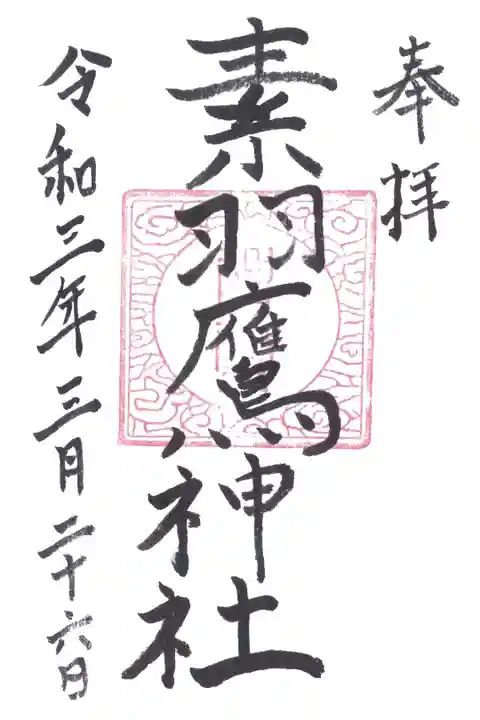 奉拝
素羽鷹神社
令和三年三月二十六日